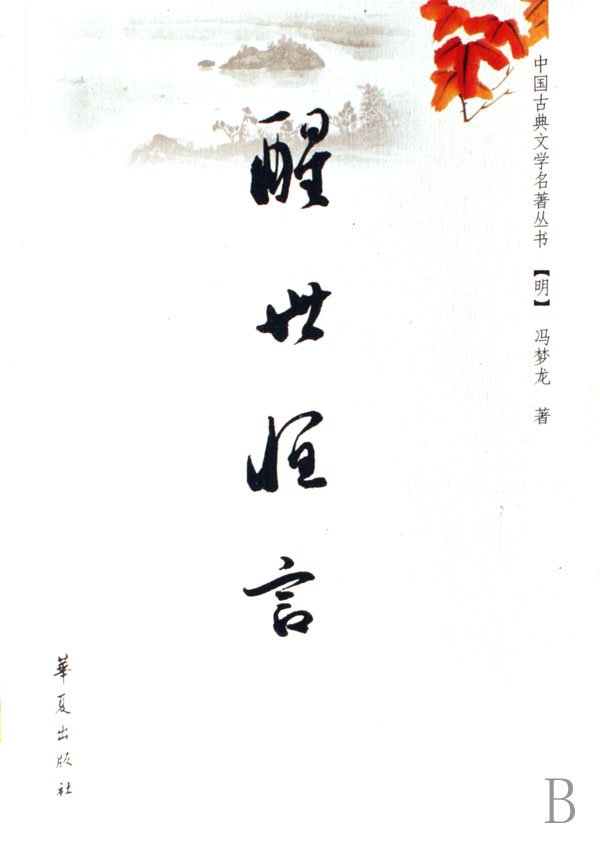 中国古典文学名著丛书 【明】 冯梦龙 著
醒世恒言
華夏出版社
B